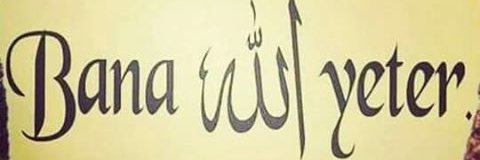 Bana الله yeter.